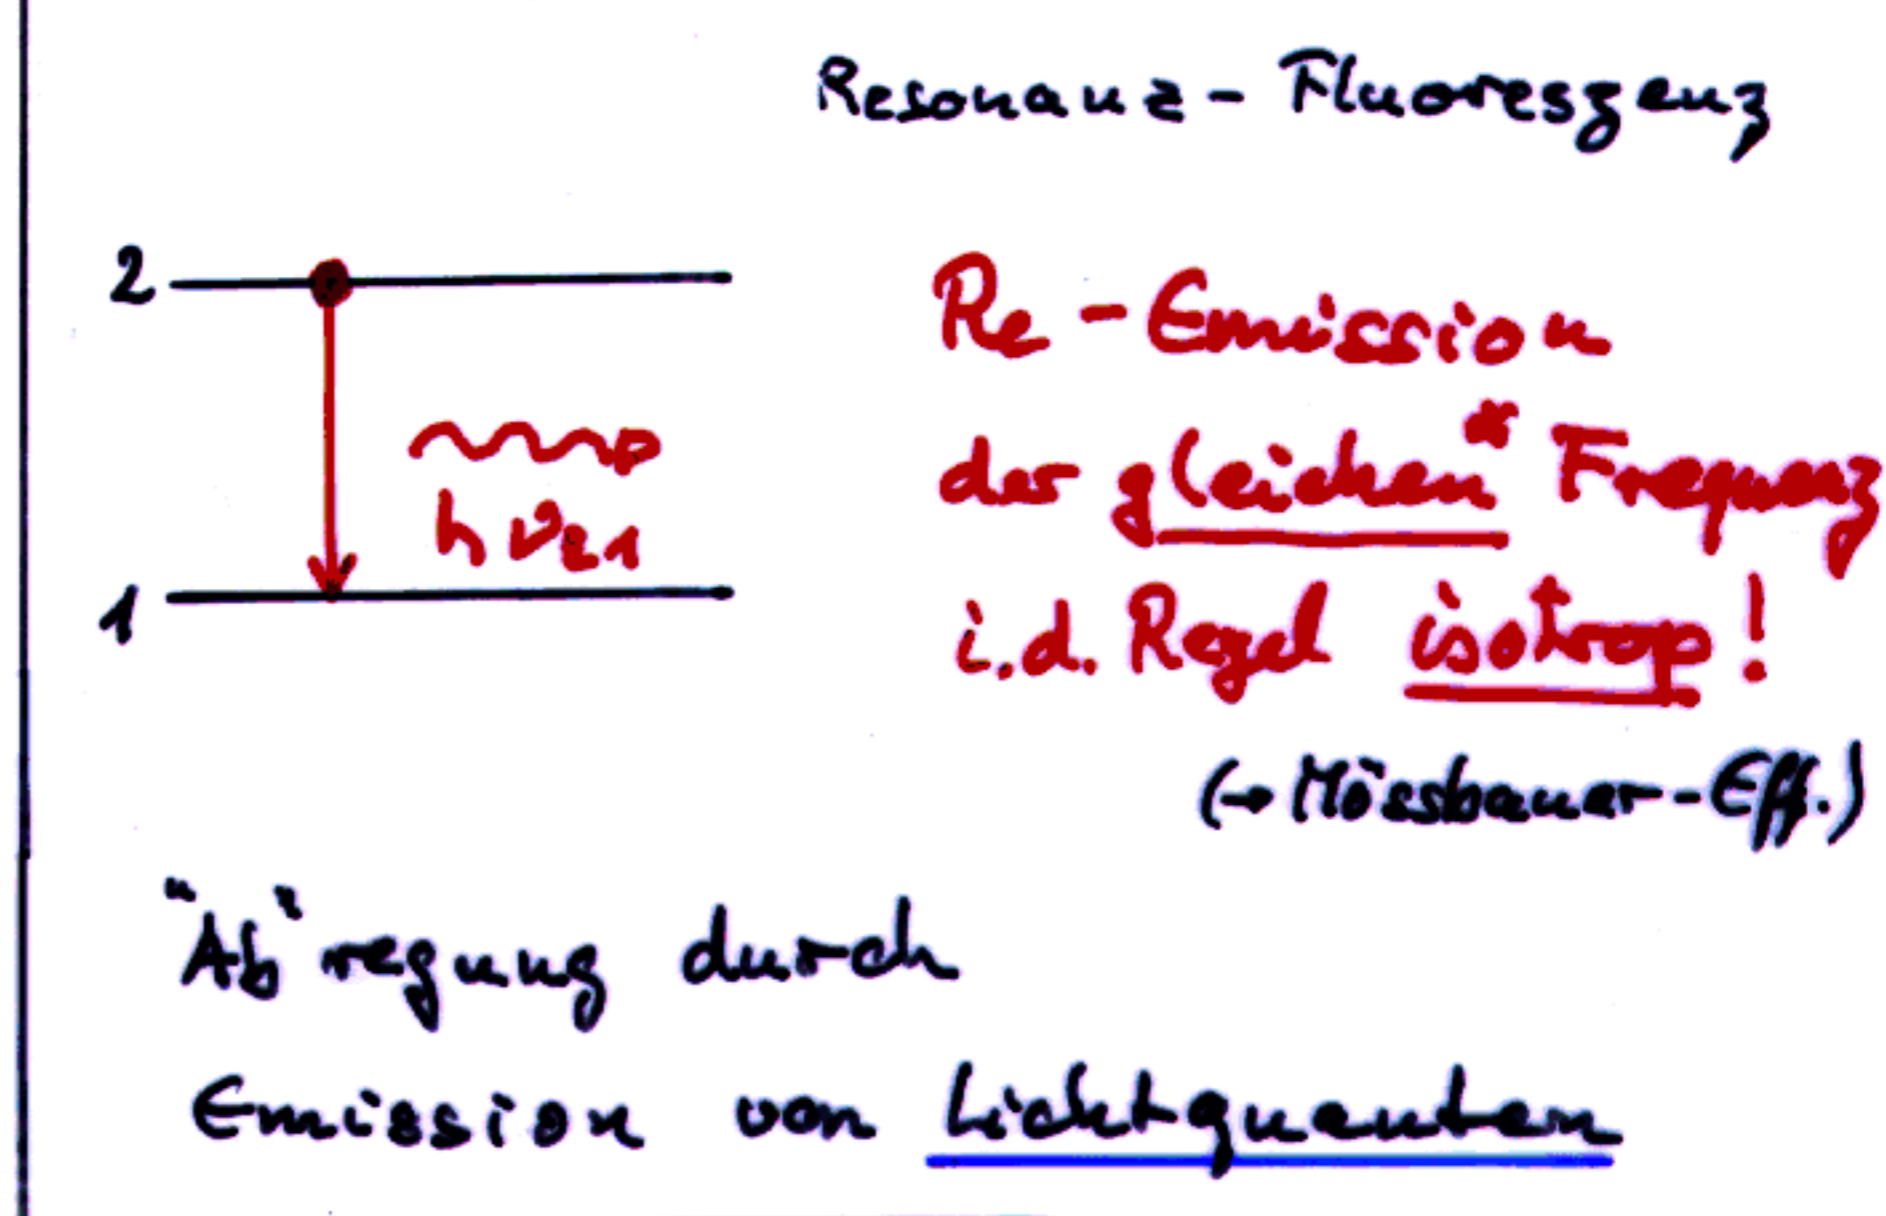 Resonanz - Fluoreszenz
2
Re - Emission
der gleichen* Frequenz
hν₂₁
1
i.d. Regel isotrop!
(→ Mössbauer-Eff.)
"Ab"regung durch
Emission von Lichtquanten